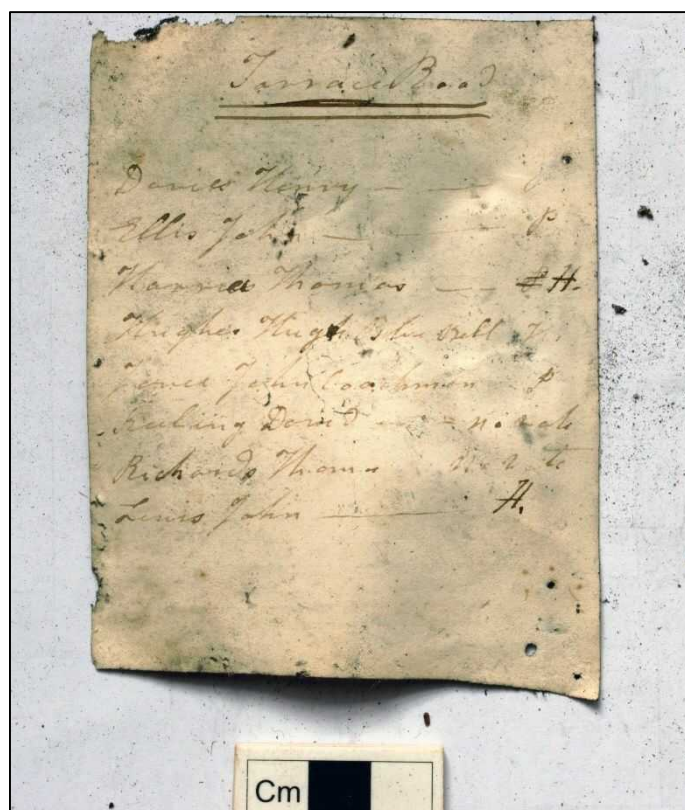 Terrace Road
Davies Henry — —
Ellis John — — — P
Harries Thomas — H.
Hughes Hugh Blue Bell H.
John Coachman P
David — No vote
Richards Thomas No vote
Lewis John — H.
Cm